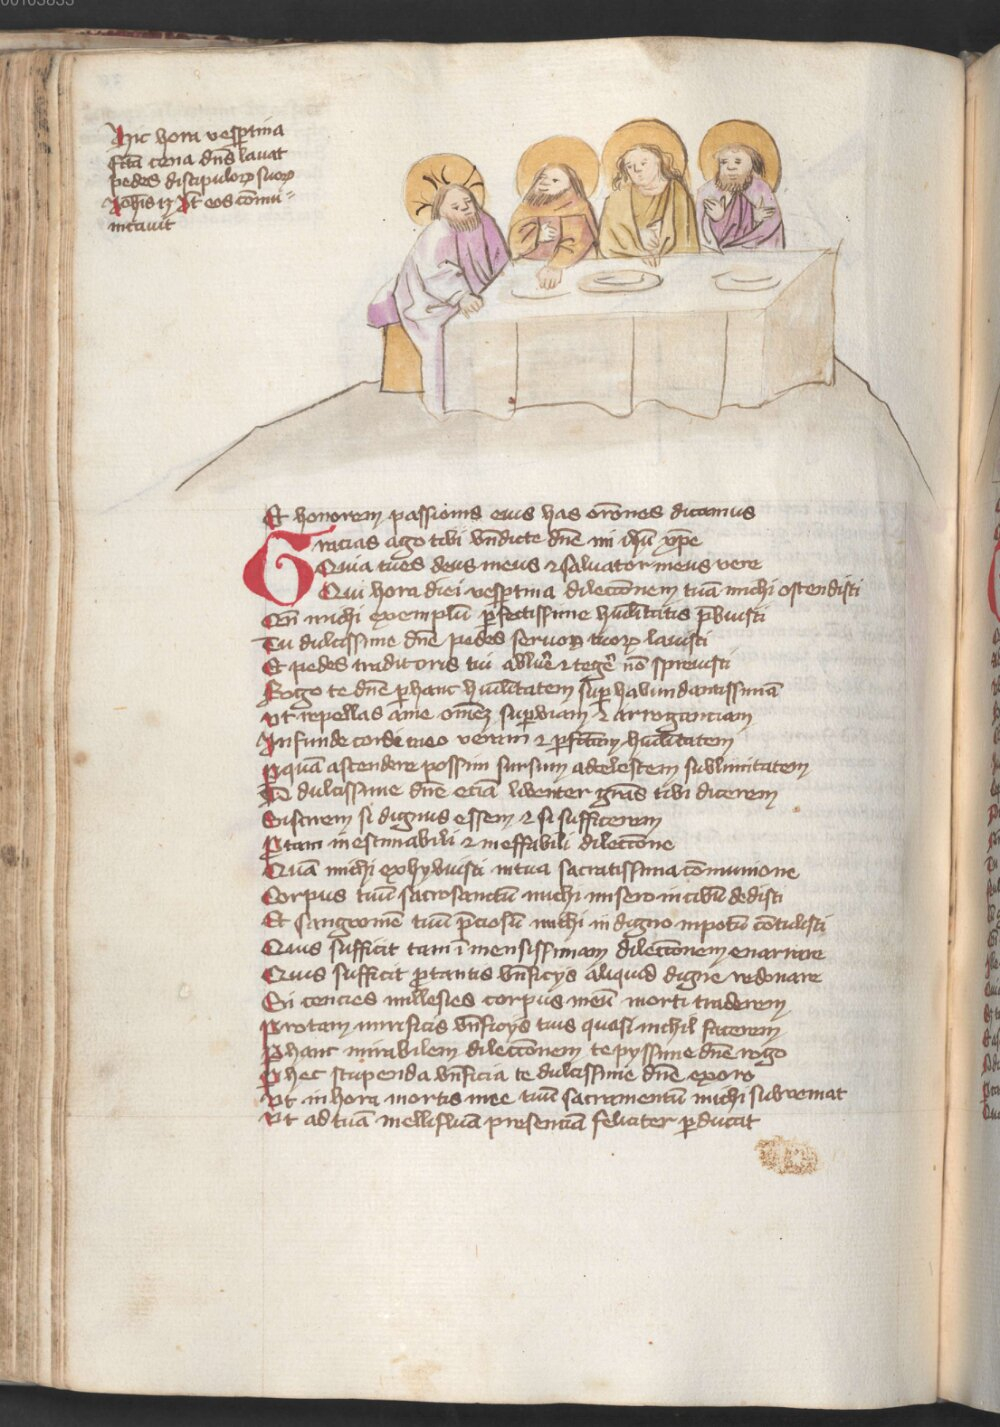 00103855
Hic hora vesptina
fcta cena dns lavat
pedes discipulorz suorz
Johis 13 Jt eos comu-
nicavit
Et honorem passionis eius has orones dicamus
Gracias ago tibi bndicte dne mi ihu xpe
Quia tu es deus meus 2 salvator meus vere
Qui hora diei vesptina dileccionem tua michi ostendisti
michi exemplu pfectissime huilitatis pbuisti
Tu dulcissime dne pedes servorz tuorz lavisti
Et pedes traditoris tui abluere 2 tegere no sprevisti
Rogo te dne p hanc huilitatem sup habundantissima
Vt repellas a me omez supbiam 2 arroganciam
Infunde cordi meo veram 2 pfctam huilitatem
P qua ascendere possim sursum ad celestem sublimitatem
Te dulcissime dne ecia libenter gras tibi dicerem
Discrem si dignus essem 2 si sufficerem
P tam inestimabili 2 ineffabili dileccione
Qua michi exhybuisti in tua sacratissima comunione
Corpus tuu sacrosanctu michi misero in cibu dedisti
Et sangwinem tuu pciosu michi indigno in potu cotulisti
Quis sufficit tam imensissimam dileccionem enarrare
Quis sufficit p tantis bnficys aliquid digne redonare
Si cencies millesies corpus meu morti traderem
Pro tam mirificis bnficys tuis quasi nichil facerem
P hanc mirabilem dileccionem te pyssime dne rogo
P hec stupenda bnficia te dulcissime dne exoro
Vt in hora mortis mee tuu sacramentu michi subveniat
Vt ad tua melliflua presencia feliciter pducat